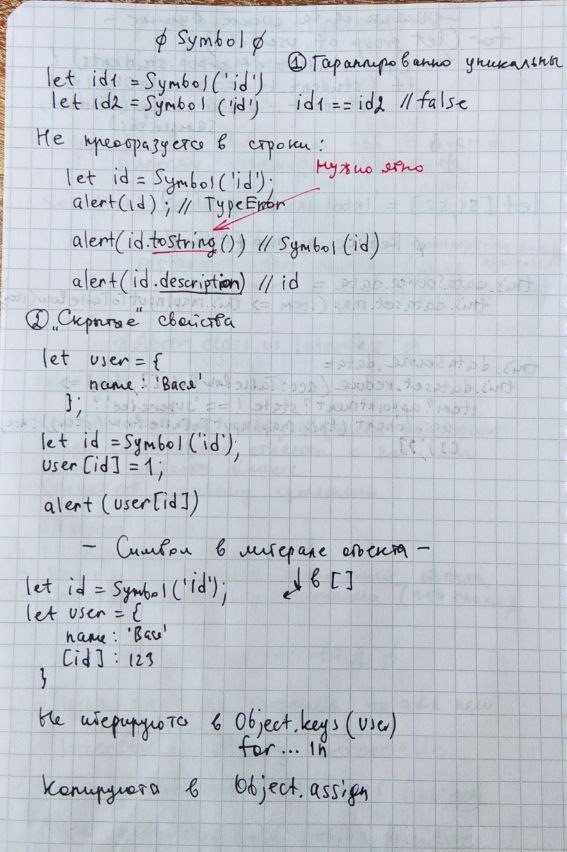 ∅ Symbol ∅
① Гарантированно уникальны
let id1 = Symbol('id')
let id2 = Symbol('id') id1 == id2 // false
Не преобразуется в строки:
нужно явно
let id = Symbol('id');
alert(id); // TypeError
alert(id.toString()) // Symbol(id)
alert(id.description) // id
② „Скрытые" свойства
let user = {
name: 'Вася'
};
let id = Symbol('id');
user[id] = 1;
alert(user[id])
— Символ в литерале объекта —
↓ в []
let id = Symbol('id');
let user = {
name: 'Вася'
[id]: 123
}
Не итерируются в Object.keys(user)
for... in
Копируются в Object.assign